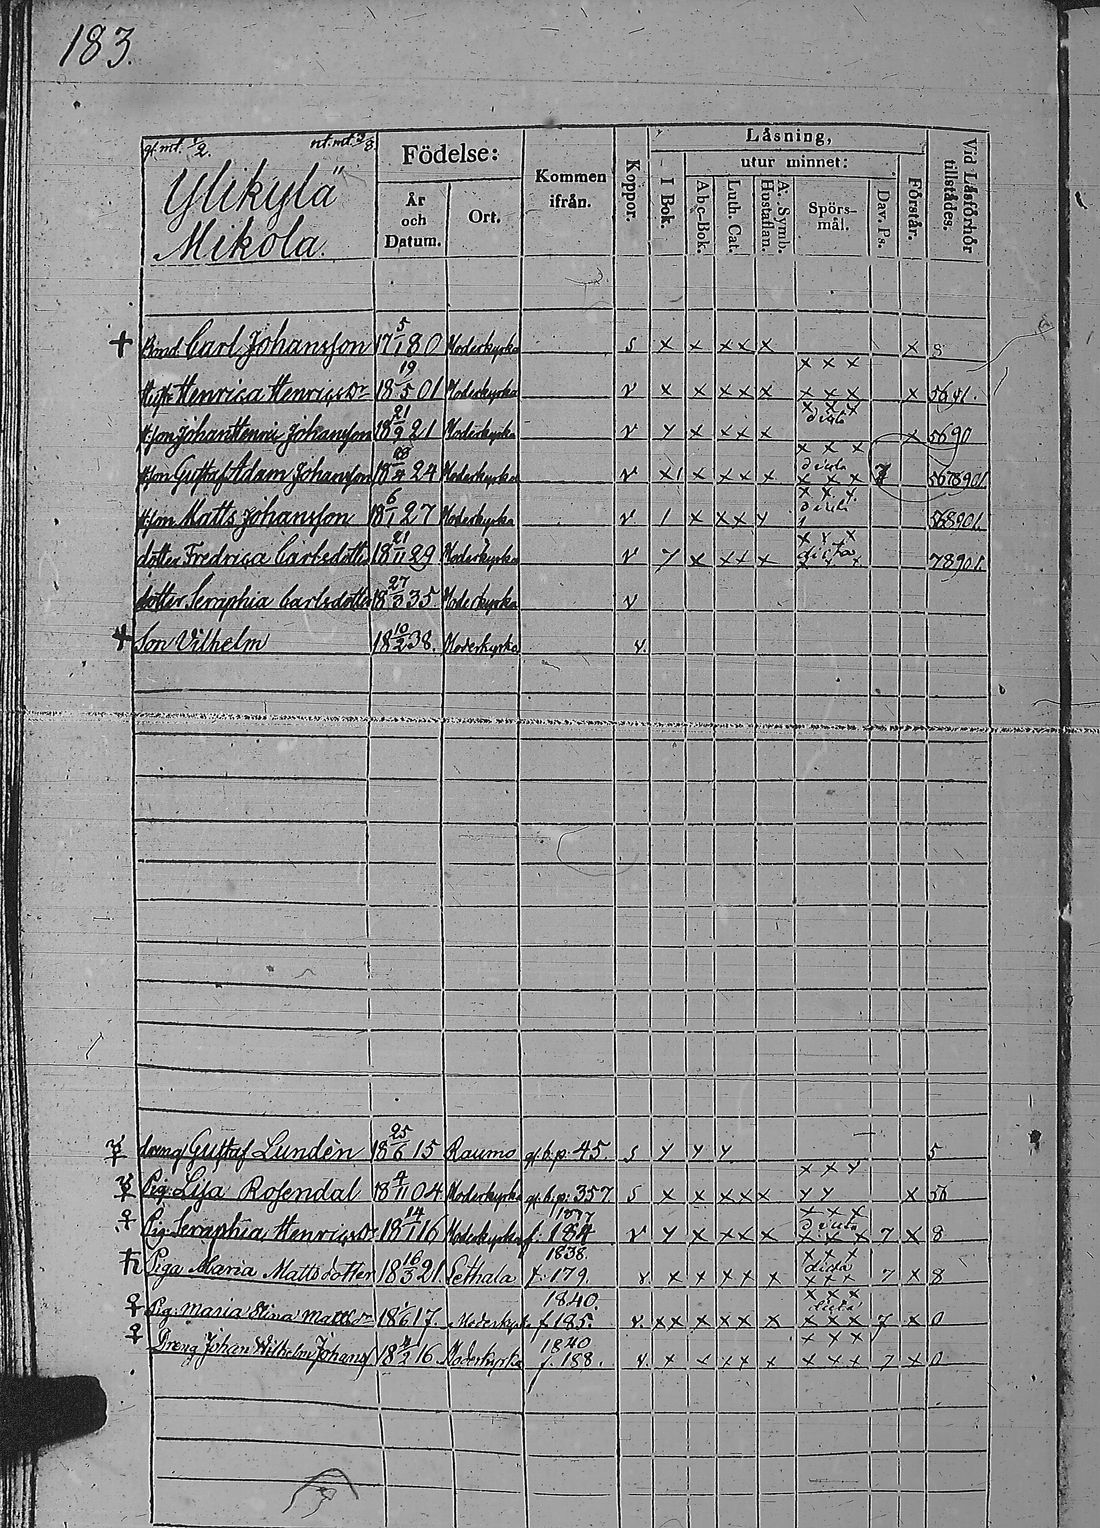 183.
gl. mt. 1/2. nt. mt. 3/8
Ylikylä
Mikola.
Födelse:
År och Datum.
Ort.
Kommen ifrån.
Koppor.
Låsning,
I Bok.
utur minnet:
Abc-Bok.
Luth. Cat.
A. Symb. Hustaflan.
Spörs-mål.
Dav. Ps.
Förstår.
Vid Läsförhör tillstädes.
+ Bond. Carl Johansson 17 5/1 80 Moderkyrka s x x x x x x 8
Hustr. Henrica Henricsdr 18 19/5 01 Moderkyrka v x x x x x x x x x 5641.
Son Johan Henric Johansson 18 21/9 21 Moderkyrka v x x x x dicto x 5690
Son Gustaf Adam Johansson 18 /4 24 Moderkyrka v x1 x x x x dicto 7 5678901
Son Matts Johansson 18 6/1 27 Moderkyrka v 1 x x x x dicto 568901.
dotter Fredrica Carlsdotter 18 21/11 29 Moderkyrka v x x x x dicta 78901.
dotter Seraphia Carlsdotter 18 27/3 35. Moderkyrka v
+ Son Vilhelm 18 10/2 38. Moderkyrka v.
dreng Gustaf Lundén 18 25/6 15 Raumo gl. b. p: 45. s 5
Pig. Lisa Rosendal 18 4/11 04 Moderkyrka gl. b. p: 357 s x x x x x x 56
♀ Pig. Seraphia Henricsdr 18 14/1 16 Moderkyrka f. 184 v x x x x dicta 7 x 8
Piga Maria Mattsdotter 18 16/3 21. Lethala 1838. f. 179. v x x x x x dicta 7 x 8
♀ Pig: Maria Stina Mattsdr 18 1/6 17. Moderkyrk 1840. f 185. v. x x x x x x dicta x x x 7 x 0
♀ Dreng Johan Wilhelm Johans 18 /2 16 Moderkyrka 1840 f. 188. v. x x x x x x x x 7 x 0